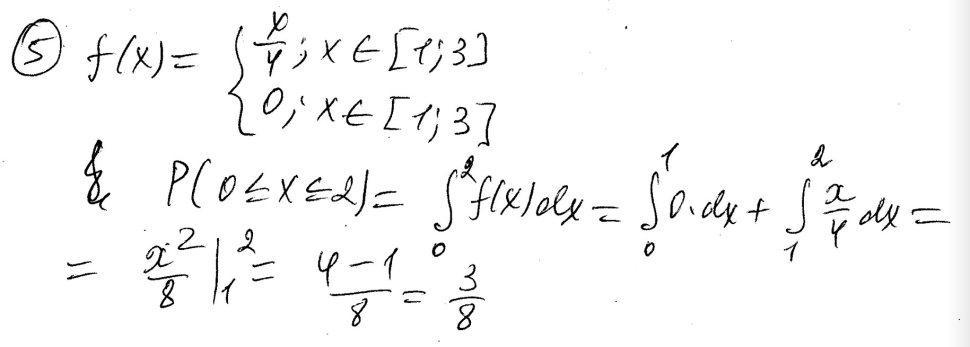 ⑤ f(x) = { x/4; x ∈ [1;3]
0; x ∈ [1;3]
P(0 ≤ x ≤ 2) = ∫₀² f(x)dx = ∫₀¹ 0·dx + ∫₁² x/4 dx =
= x²/8 |₁² = (4-1)/8 = 3/8